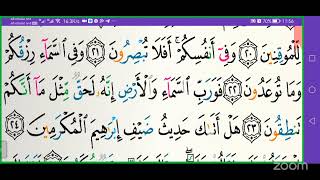 16.3K/s 11:56
لِّلْمُوقِنِينَ ٢٠ وَفِىٓ أَنفُسِكُمْ ۚ أَفَلَا تُبْصِرُونَ ٢١ وَفِى ٱلسَّمَآءِ رِزْقُكُمْ
وَمَا تُوعَدُونَ ٢٢ فَوَرَبِّ ٱلسَّمَآءِ وَٱلْأَرْضِ إِنَّهُۥ لَحَقٌّ مِّثْلَ مَآ أَنَّكُمْ
تَنطِقُونَ ٢٣ هَلْ أَتَىٰكَ حَدِيثُ ضَيْفِ إِبْرَٰهِيمَ ٱلْمُكْرَمِينَ ٢٤
zoom